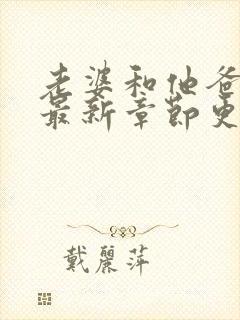 老婆和他爸
最新章节更
戴麗萍